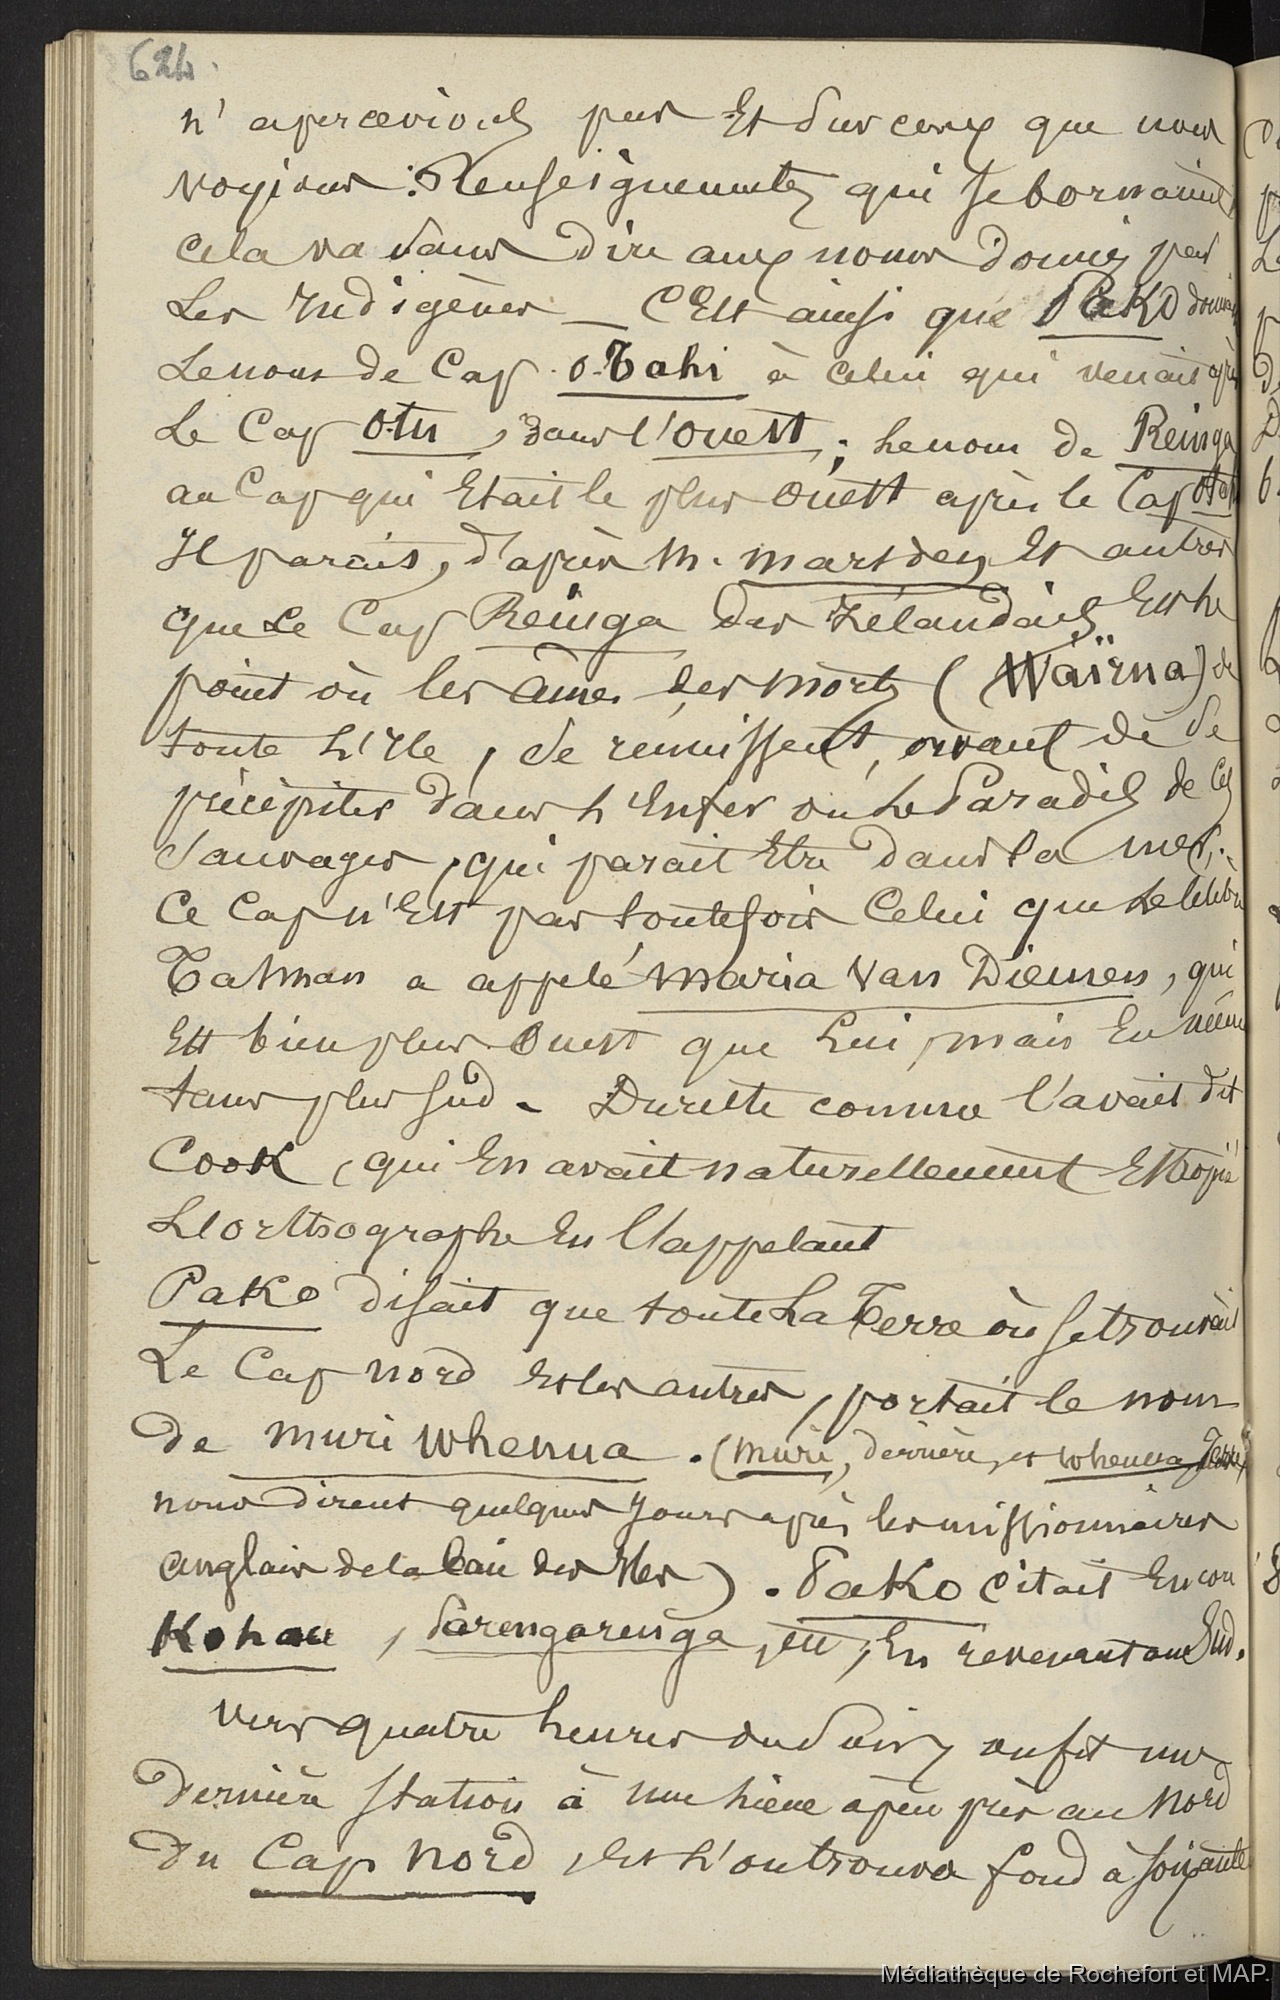 624.
n'apercevions pas et sur ceux que nous
voyions. Renseignements qui se bornaient
cela va sans dire aux noms donnés par
les indigènes _ C'est ainsi que Pako donnait
le nom de Cap o-Tahi à celui qui venait après
le Cap Otu, dans l'ouest; le nom de Reinga
au Cap qui était le plus ouest après le Cap
Il parait, d'après M. Marsden et autres
que le Cap Reinga des Zélandais est le
point où les âmes des morts (Waïrua) de
toute l'Ile, se réunissent, avant de se
précipiter dans l'Enfer ou le Paradis de ces
sauvages, qui parait être dans la mer.
Ce Cap n'est pas toutefois celui que le célèbre
Tasman a appelé Maria Van Diemen, qui
est bien plus ouest que lui, mais en même
tems plus sud. Du reste comme l'avait dit
Cook, qui en avait naturellement estropié
l'orthographe en l'appelant
Pako disait que toute la Terre où se trouvait
le Cap nord et les autres, portait le nom
de muri whenua. (muri, derrière, et whenua, Terre,
nous dirent quelques jours après les missionnaires
anglais de la baie des Iles). Pako citait encore
Kohau, Parengarenga, etc, en revenant au Sud.
Vers quatre heures du soir, on fit une
dernière station à une lieue à peu près au Nord
du Cap Nord, et l'on trouva fond à soixante
Médiathèque de Rochefort et MAP.